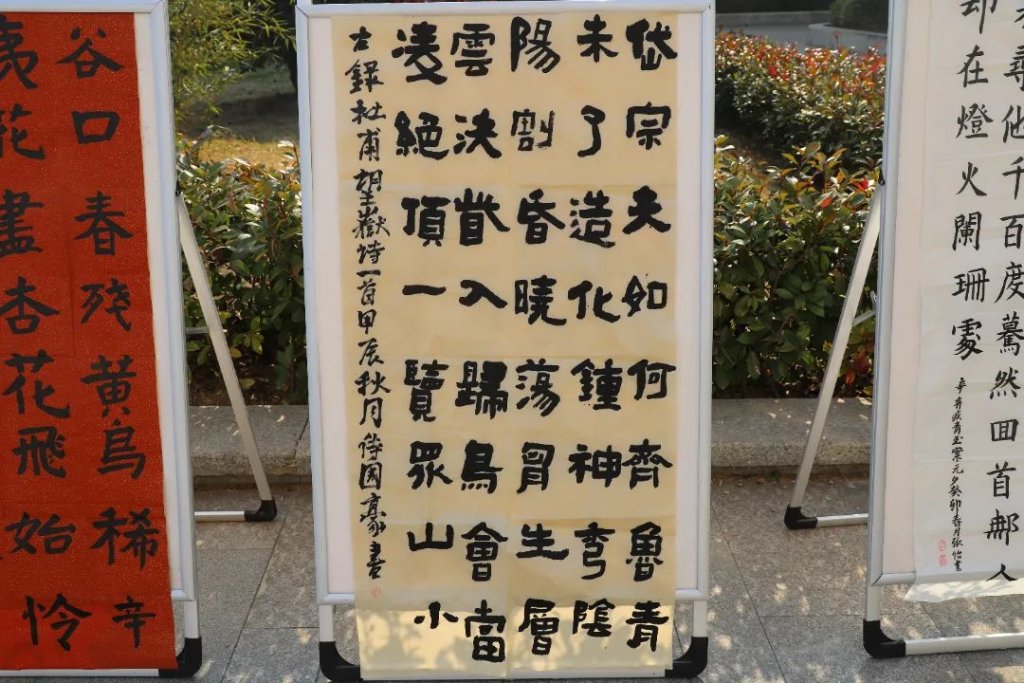 尋他千百度驀然回首那人
却在燈火闌珊處
辛弃疾青玉案元夕癸卯
岱宗夫如何齊魯青
未了造化鍾神秀陰
陽割昏曉蕩胷生層
雲決眥入歸鳥會當
凌絕頂一覽眾山小
右錄杜甫望嶽诗一首甲辰秋月国豪書
谷口春殘黄鳥稀辛
夷花盡杏花飛始怜